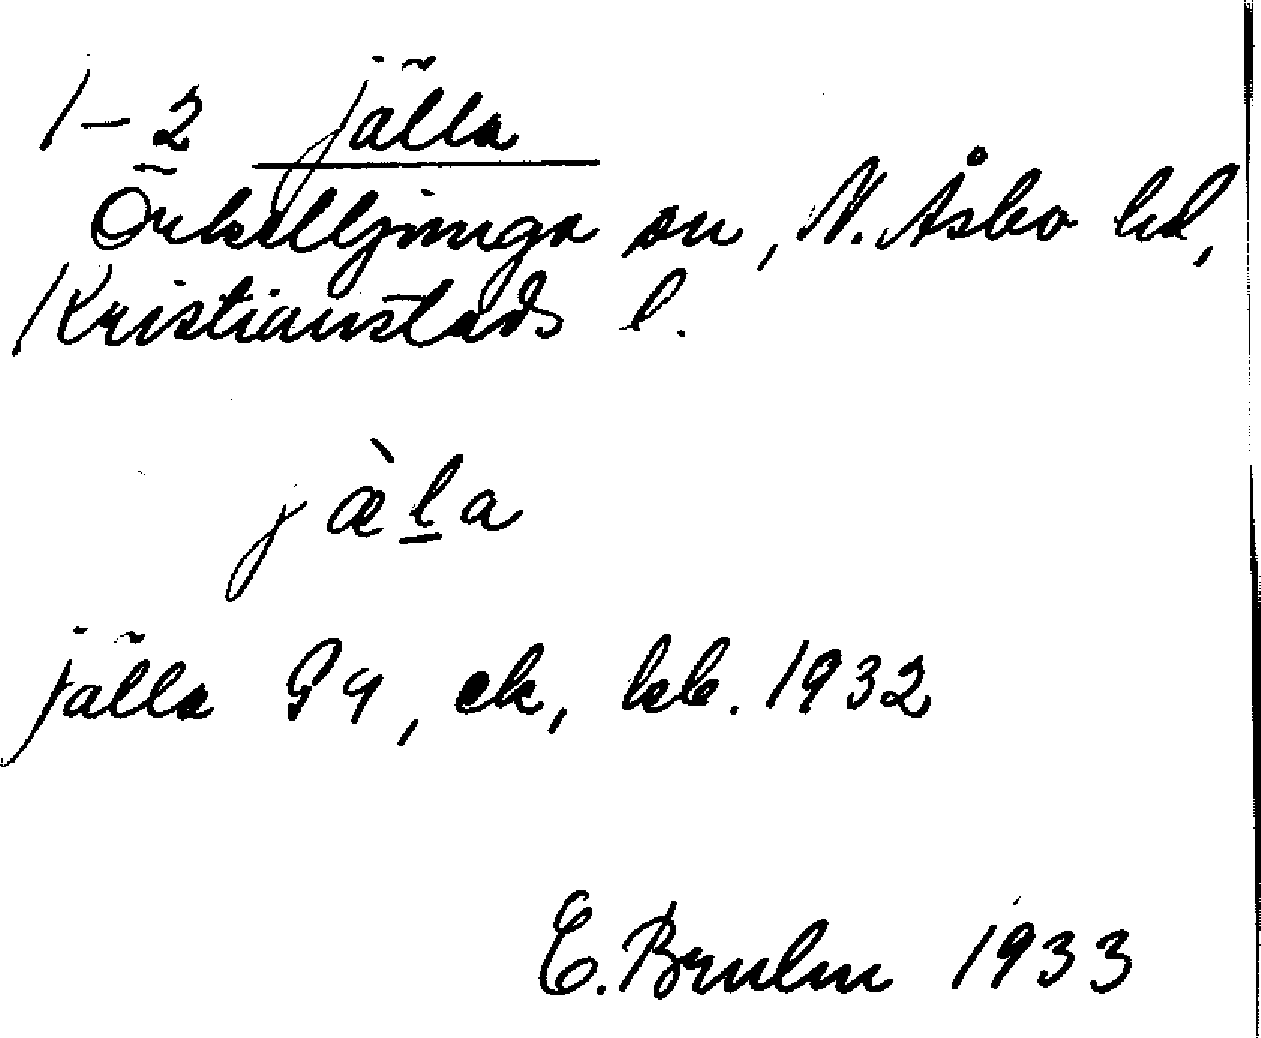 1-2 jälla
Örkelljunga sn, N. Åsbo hd,
Kristianstads l.
jæ̀l̲a
jälla G4, ek, kb. 1932
E. Bruhn 1933